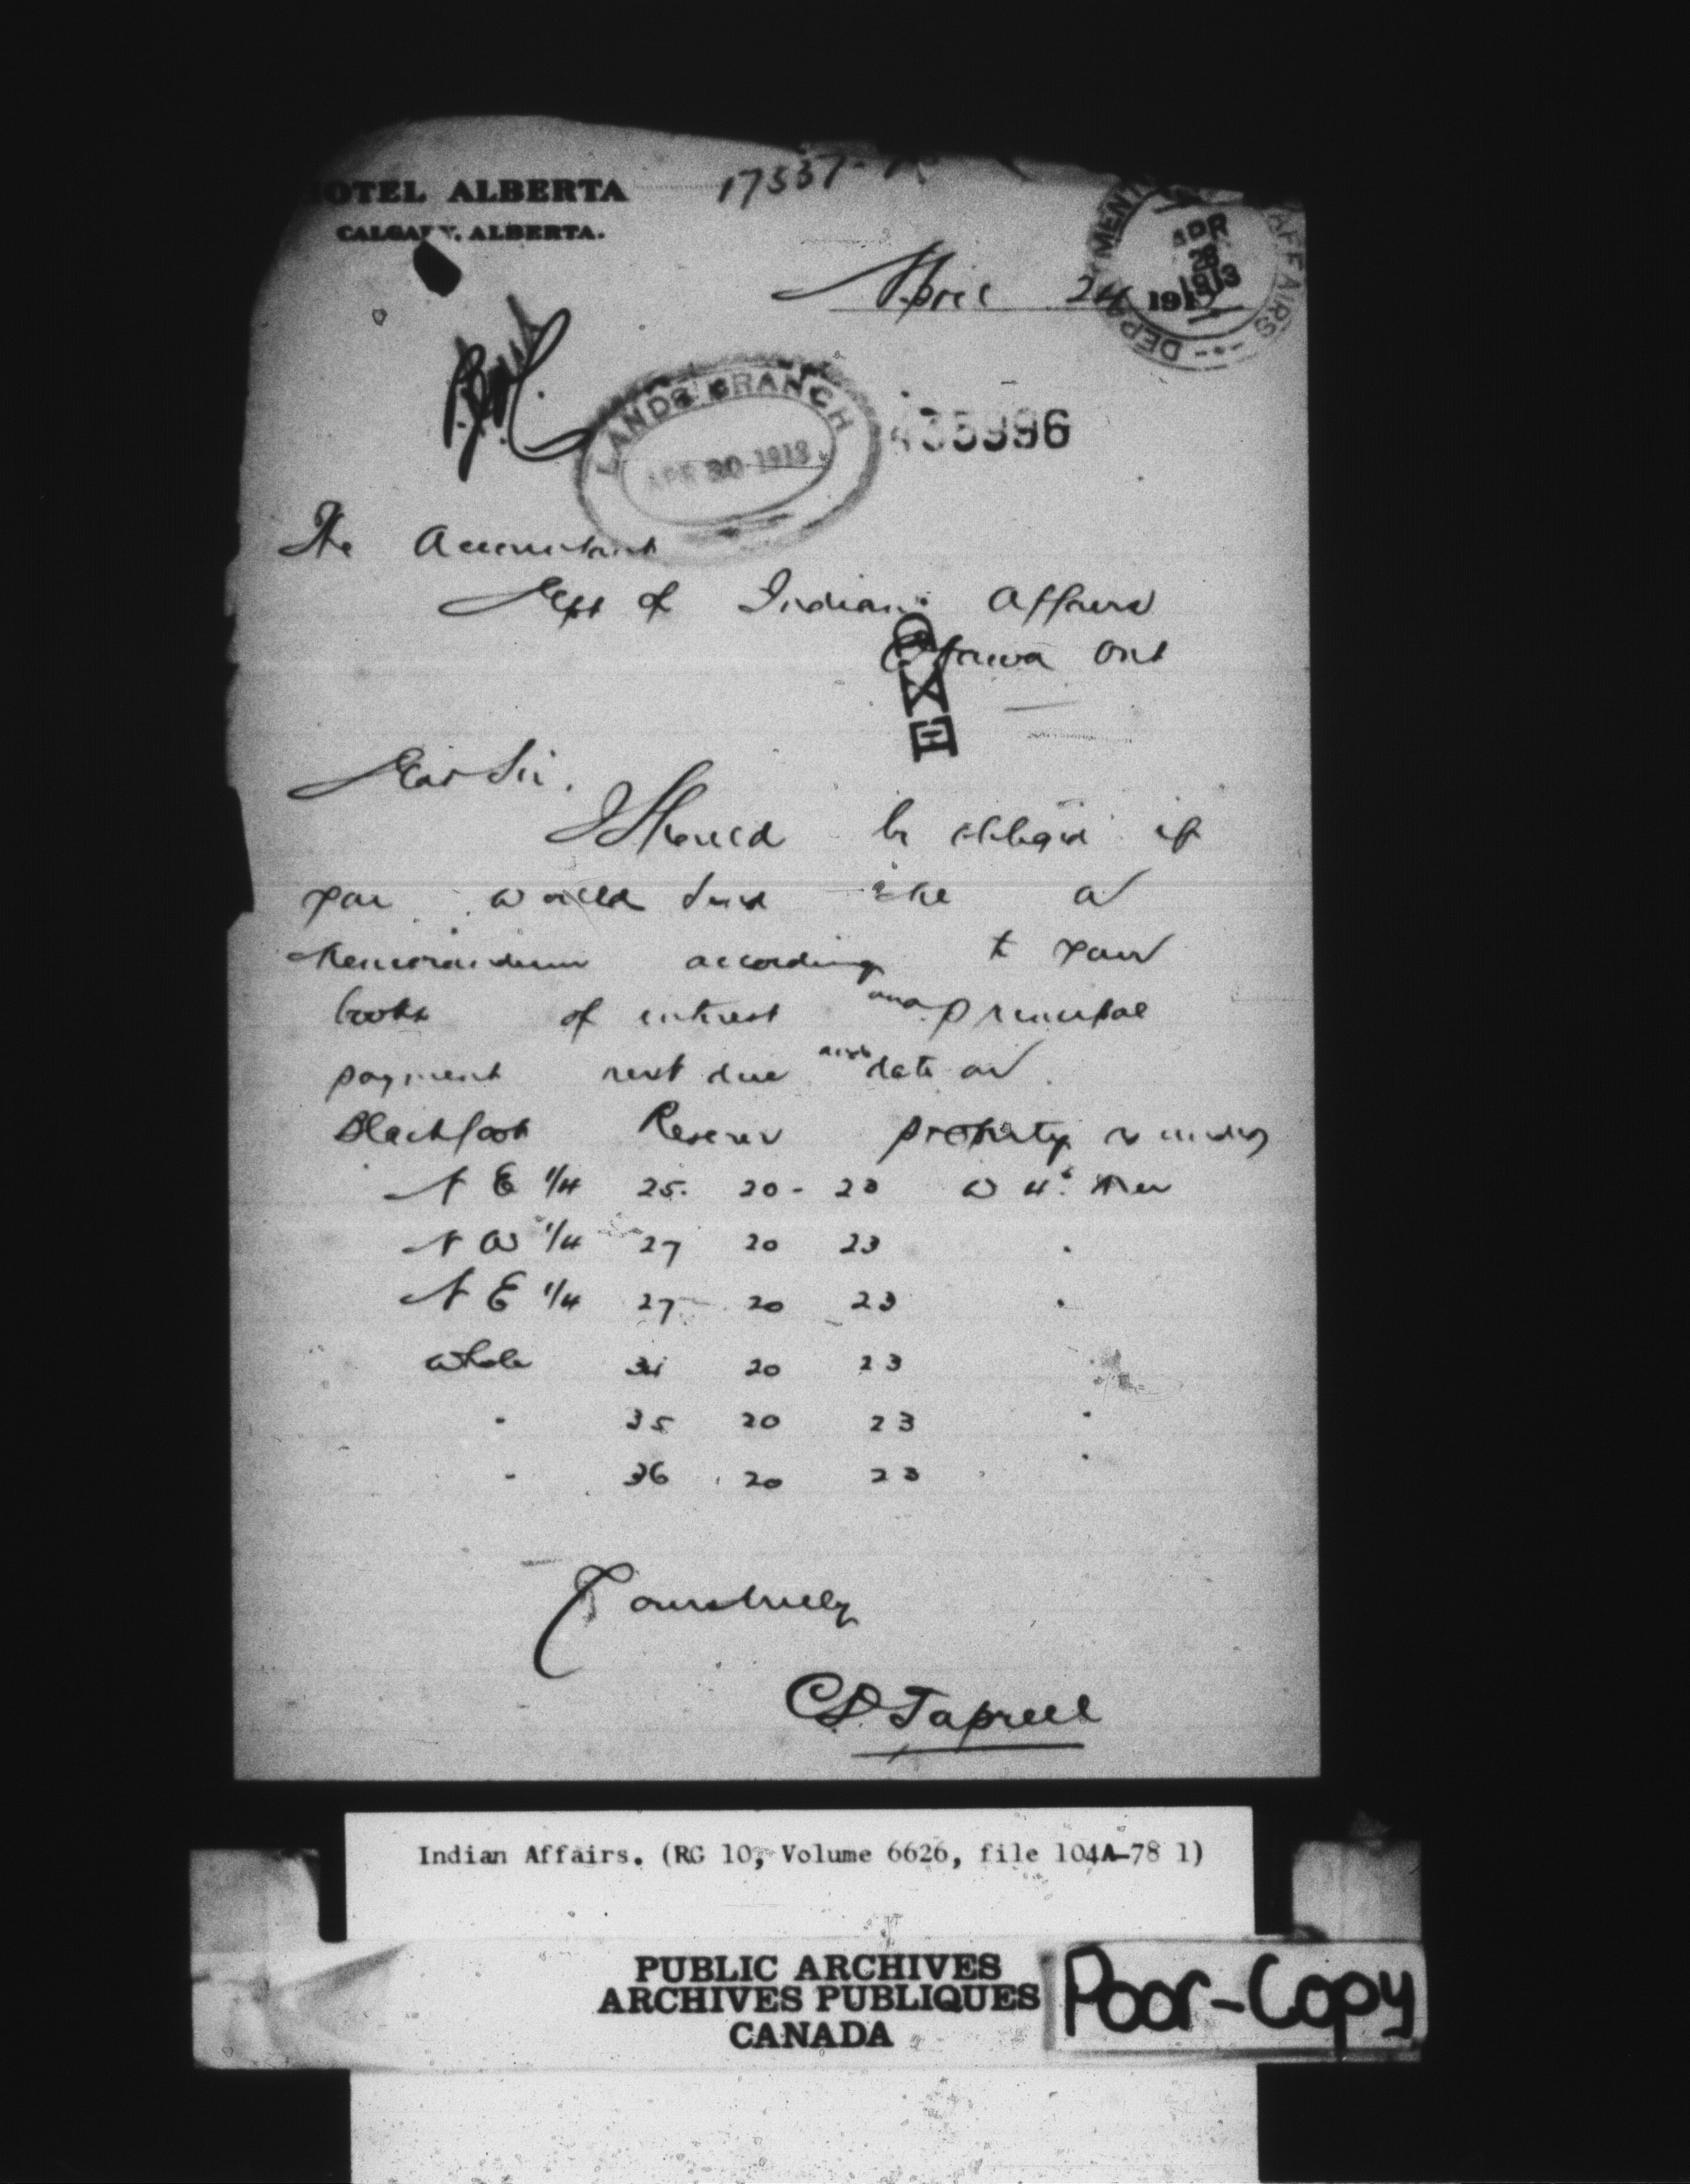 HOTEL ALBERTA
CALGARY, ALBERTA.
17537-
DEPARTMENT AFFAIRS
APR
28
1913
April 24 191
LANDS BRANCH
APR 30 1913
435996
The Accountant
Dept of Indian Affairs
Ottawa Ont
EXD
Dear Sir.
I Should be obliged if
you would send me a
memorandum according to your
books of interest and principal
payment next due and date on
Blackfoot Reserve property
N E 1/4 25. 20 - 23 W 4th Mer
N W 1/4 27 20 23 "
N E 1/4 27 20 23 "
whole 34 20 23
" 35 20 23 "
" 36 20 23 "
Yours truly
C D Taprell
Indian Affairs. (RG 10, Volume 6626, file 104A-78 1)
PUBLIC ARCHIVES
ARCHIVES PUBLIQUES
CANADA
Poor-Copy